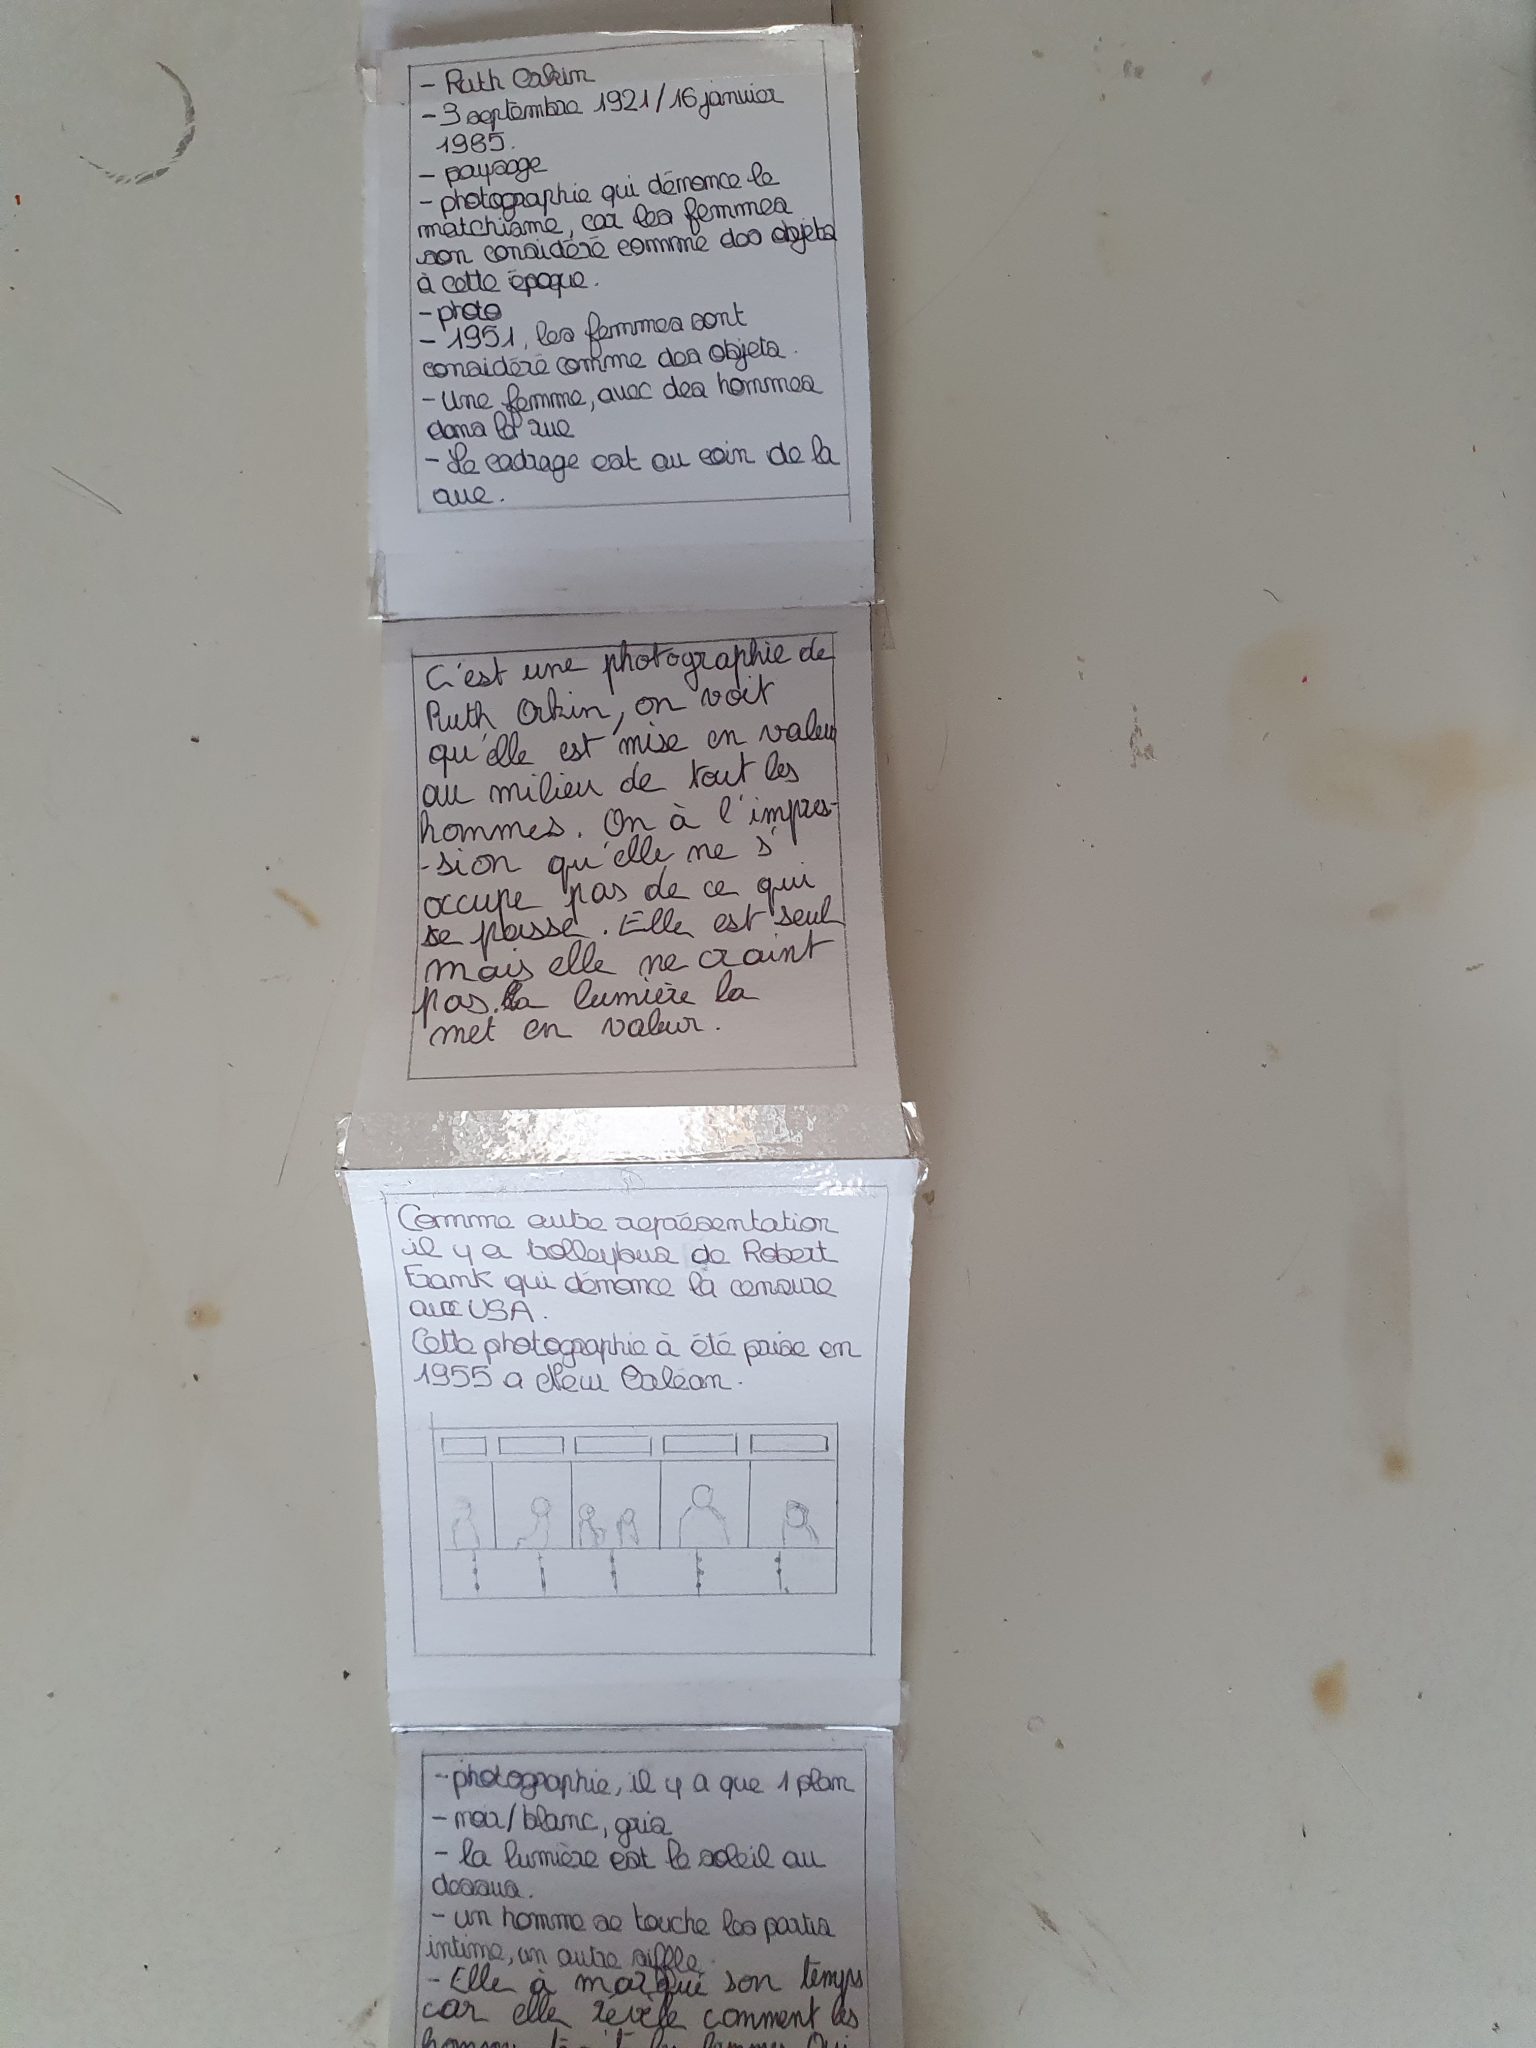 - Ruth Orkin
- 3 septembre 1921/16 janvier
1985.
- paysage
- photographie qui dénonce le
matchisme, car les femmes
son considéré comme des objets
à cette époque.
- photo
- 1951, les femmes sont
considéré comme des objets.
- Une femme, avec des hommes
dans la rue
- Le cadrage est au coin de la
rue.
C'est une photographie de
Ruth Orkin, on voit
qu'elle est mise en valeur
au milieu de tout les
hommes. On à l'impres-
-sion qu'elle ne s'
occupe pas de ce qui
se passe. Elle est seul
mais elle ne craint
pas. La lumière la
met en valeur.
Comme autre représentation
il y a trolleybus de Robert
Frank qui dénonce la censure
aux USA.
Cette photographie à été prise en
1955 a New Orléan.
- photographie, il y a que 1 plan
- noir/blanc, gris
- la lumière est le soleil au
dessus.
- un homme se touche les partis
intime, un autre siffle.
- Elle à marqué son temps
car elle révèle comment les